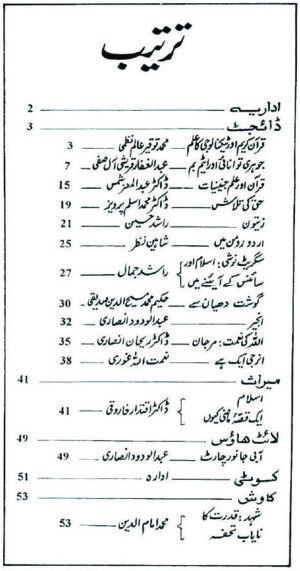 ترتیب
اداریہ 2
ڈائجسٹ 3
قرآن کریم اور ٹیکنالوجی کا علم محمد توقیر عالم فلحی 3
جوہری توانائی اور ایٹم بم عبدالغفار قریشی آل صفی 7
قرآن اور علم جنینیات ڈاکٹر عبدالمعز شمس 15
حق کی تلاش ڈاکٹر محمد اسلم پرویز 19
زیتون راشد حسین 21
اردو رومن میں شاہین نظر 25
سگریٹ نوشی: اسلام اور
سائنس کے آئینے میں راشد جمال 27
گوشت دھیان سے حکیم محمد مسیح الدین صدیقی 30
انجیر عبدالودود انصاری 32
اللہ کی نعمت: مرجان ڈاکٹر ریحان انصاری 35
انرجی ایک ہے نعمت اللہ غوری 38
میراث 41
اسلام
ایک قصۂ ماضی کیوں ڈاکٹر اقتدار فاروقی 41
لائٹ ھاؤس 49
آبی جانور چارٹ عبدالودود انصاری 49
کسوٹی ادارہ 51
کاوش 53
شہد: قدرت کا
نایاب تحفہ محمد امام الدین 53